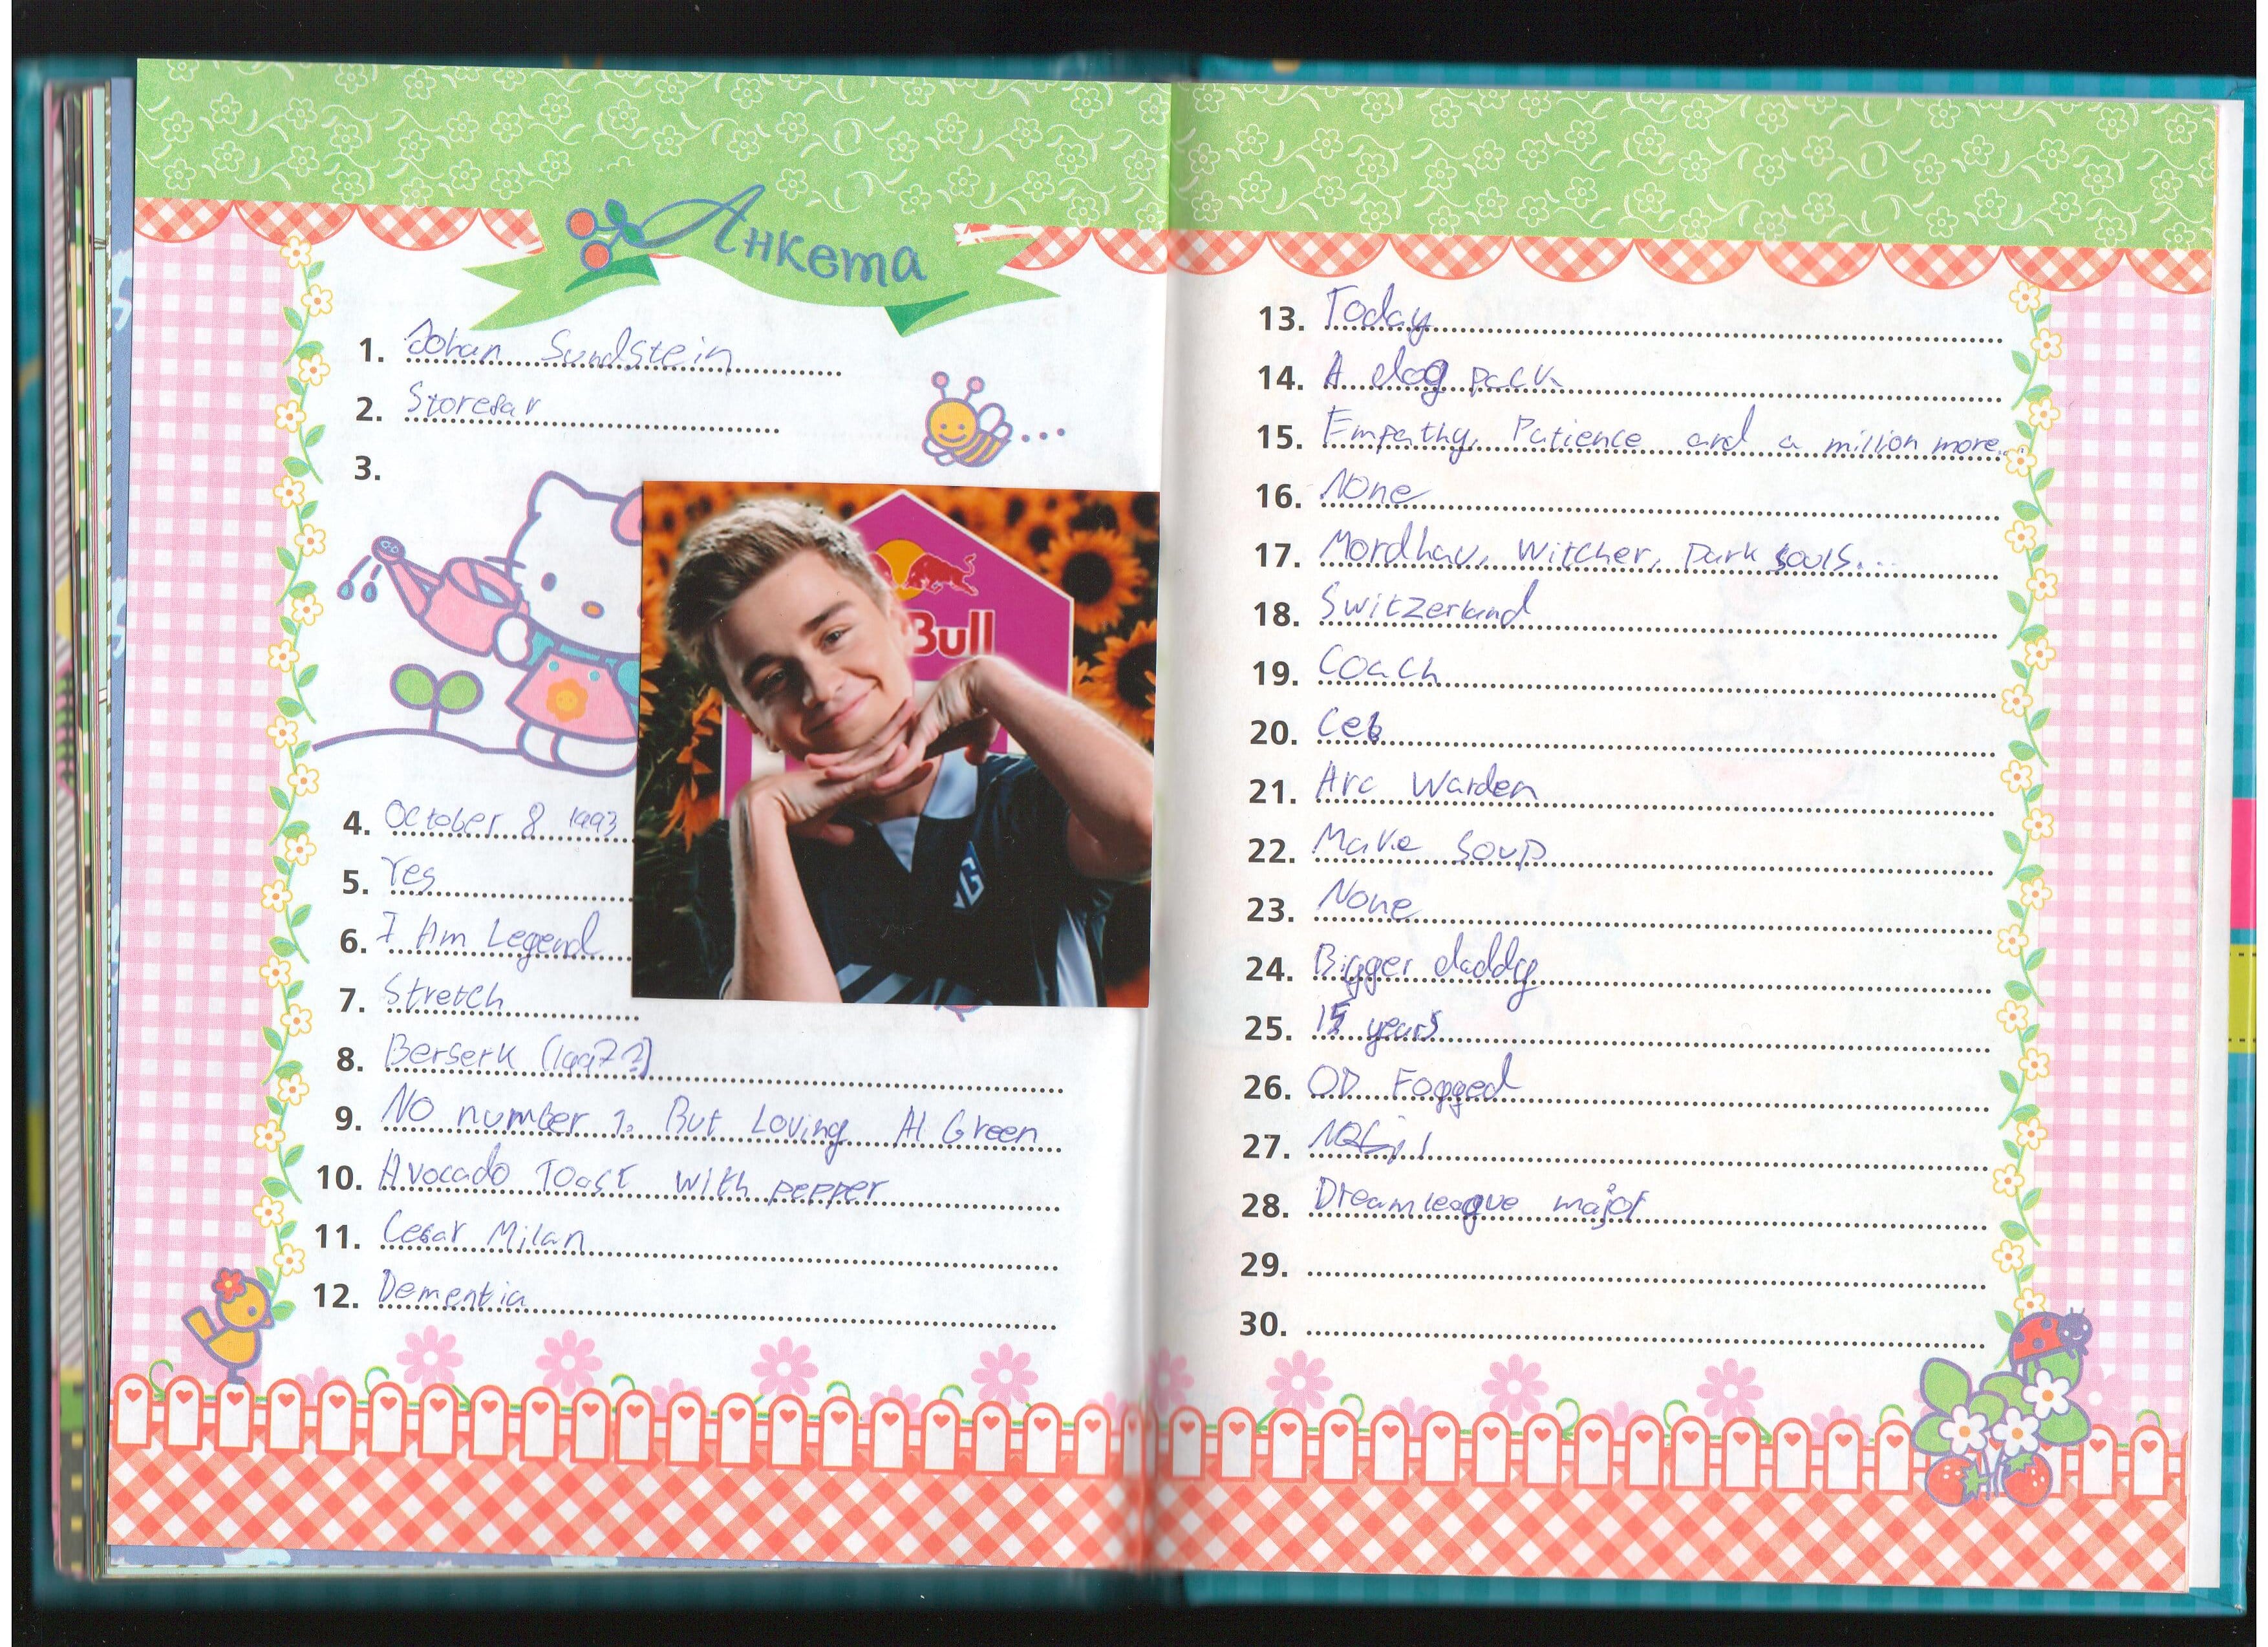 Анкета
1. Johan Sundstein
2. Storebar
3.
Bull
G
4. October 8 1993
5. Yes
6. I Am Legend
7. Stretch
8. Berserk (1997?)
9. No number 1. But Loving Al Green
10. Avocado Toast with pepper
11. Cesar Milan
12. Dementia
13. Today
14. A dog pack
15. Empathy, Patience and a million more...
16. None
17. Mordhau, Witcher, Dark Souls...
18. Switzerland
19. Coach
20. Ceb
21. Arc Warden
22. Make soup
23. None
24. Bigger daddy
25. 15 years
26. OD Fogged
27.
28. Dreamleague major
29.
30.